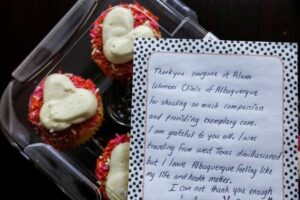 Thank you everyone at Alamo
Womens Clinic of Albuquerque
for showing so much compassion
and providing exemplary care.
I am grateful to you all. I was
traveling from West Texas disillusioned
but I leave Albuquerque feeling like
my life and health matter.
I can not thank you enough